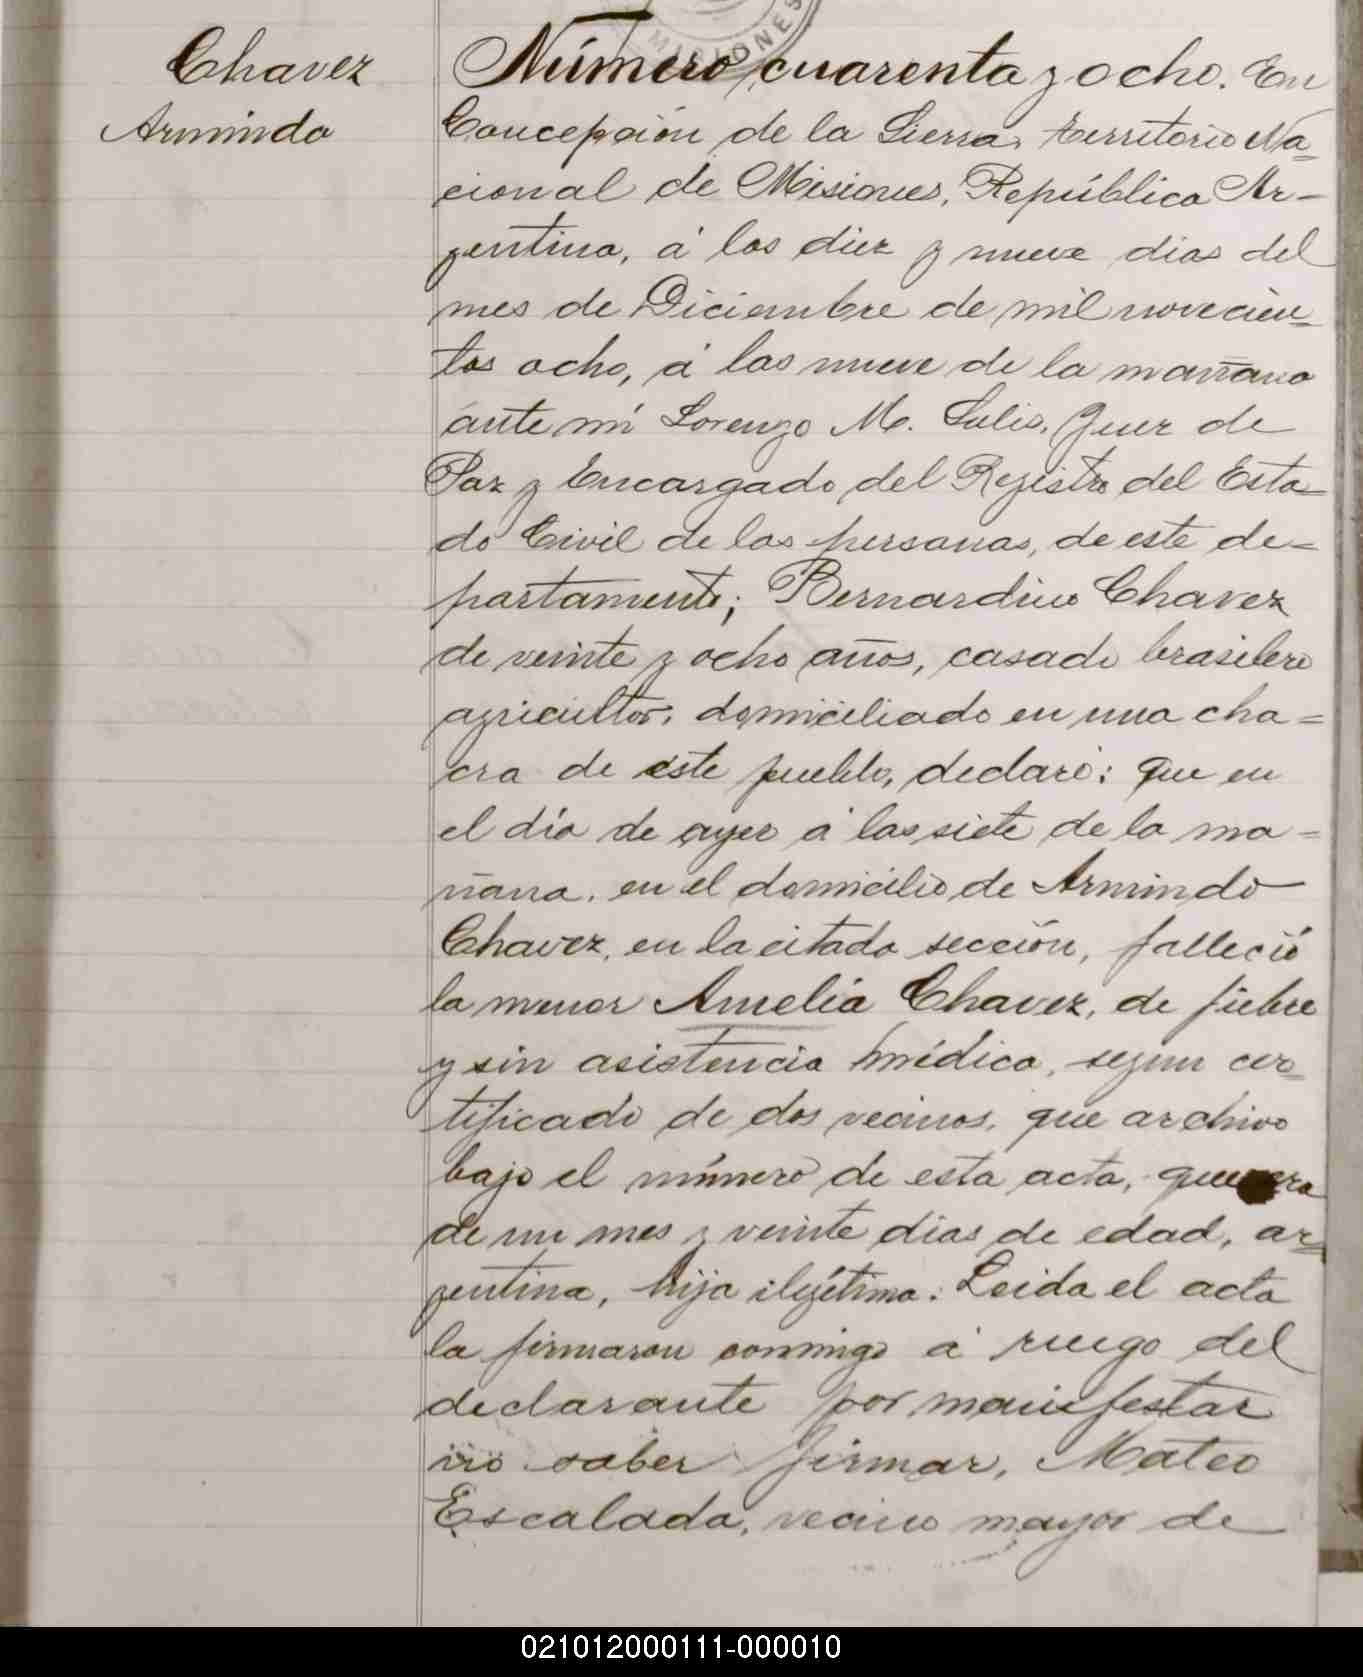 MISIONES
Chavez
Armindo
Número cuarenta y ocho. En
Concepción de la Sierra, territorio Na=
cional de Misiones, República Ar-
gentina, á los diez y nueve dias del
mes de Diciembre de mil novecien-
tos ocho, á las nueve de la mañana
ante mi Lorenzo M. Solis, Juez de
Paz y Encargado del Registro del Esta-
do Civil de las personas, de este de-
partamento; Bernardino Chavez
de veinte y ocho años, casado brasilero
agricultor, domiciliado en una cha=
cra de este pueblo, declaró: que en
el día de ayer á las siete de la ma-
ñana, en el domicilio de Armindo
Chavez, en la citada sección, falleció
la menor Amelia Chavez, de fiebre
y sin asistencia médica, segun cer-
tificado de dos vecinos, que archivo
bajo el número de esta acta, que era
de un mes y veinte dias de edad, ar=
gentina, hija ilegítima. Leida el acta
la firmaron conmigo á ruego del
declarante por manifestar
no saber firmar, Mateo
Escalada, vecino mayor de
021012000111-000010